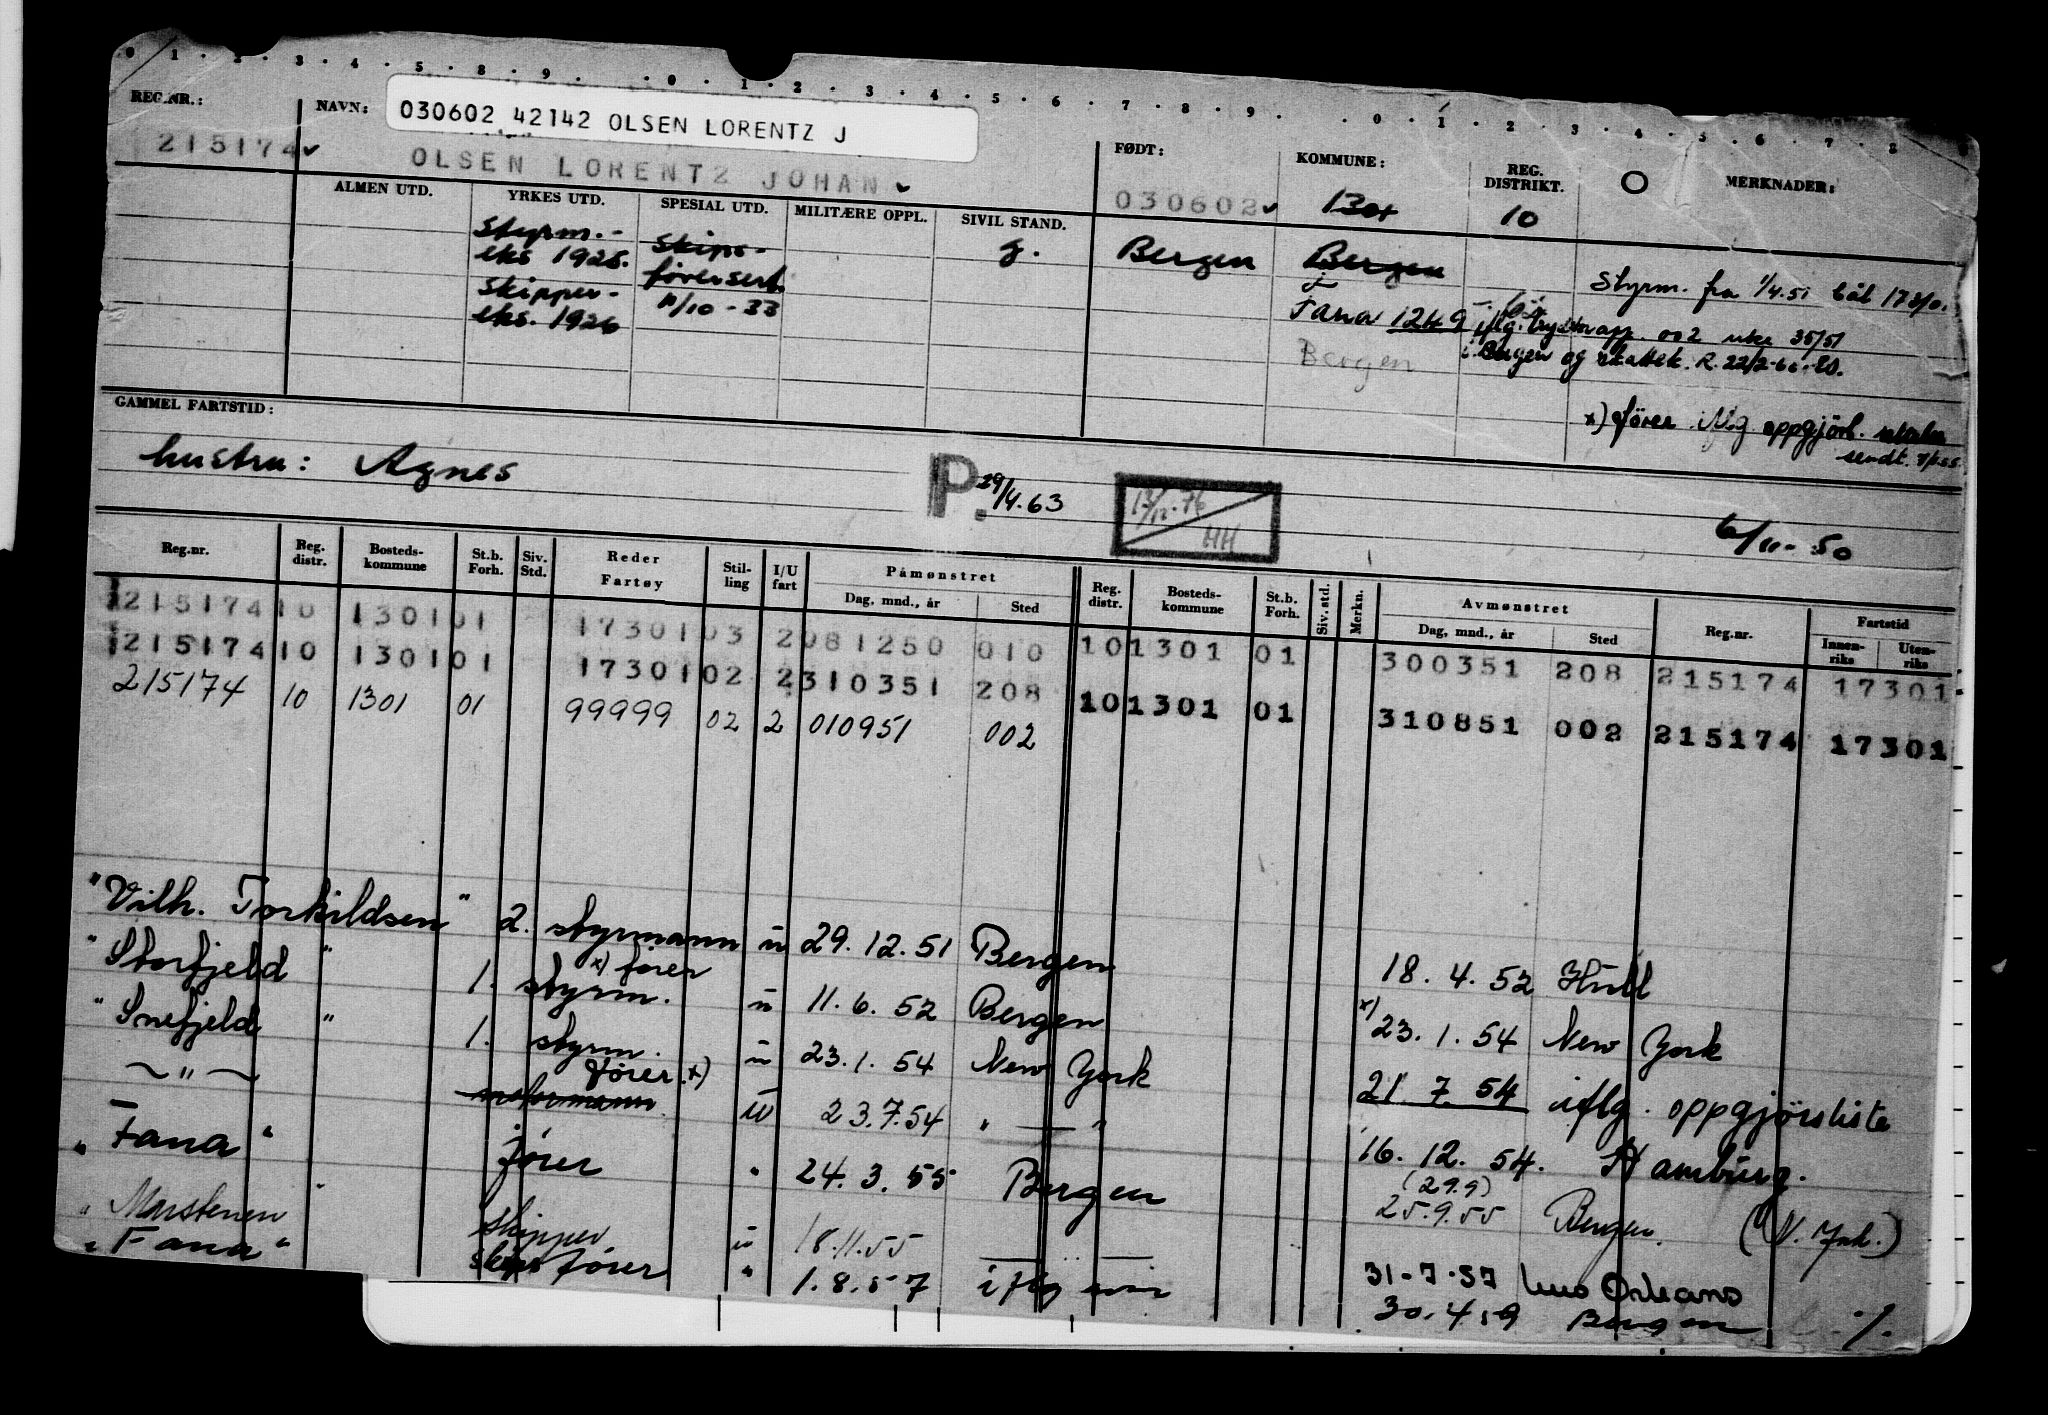 0 1 2 3 4 5 6 7 8 9 0 1 2 3 4 5 6 7 8 9 0 1 2 3 4 5 6 7 8
REG.NR.: NAVN: 030602 42142 OLSEN LORENTZ J FØDT: KOMMUNE: REG. DISTRIKT. O MERKNADER:
215174 OLSEN LORENTZ JOHAN 030602 1301 10
ALMEN UTD. YRKES UTD. SPESIAL UTD. MILITÆRE OPPL. SIVIL STAND.
Styrm.- Skips- g. Bergen Bergen
eks 1925. førersert. Styrm. fra 1/4.51 båt 17301.
Skipper- 11/10-33 Fana 1249 002 uke 35/51
eks. 1926 Bergen i Bergen og skattek. R. 22/2-66.
x) fører iflg. oppgjörl.
sendt.
GAMMEL FARTSTID:
hustru: Agnes P. 29/4.63 13/12.76 HH 6/11-50
Reg.nr. Reg. distr. Bosteds- kommune St.b. Forh. Siv. Std. Reder Fartøy Stil- ling I/U fart Påmønstret Dag, mnd., år Sted Reg. distr. Bosteds- kommune St.b. Forh. Siv. std. Merkn. Avmønstret Dag, mnd., år Sted Reg.nr. Fartstid Innen- riks Uten- riks
215174 10 1301 01 17301 03 2 081250 010 10 1301 01 300351 208 215174 17301
215174 10 1301 01 17301 02 2 310351 208 10 1301 01 310851 002 215174 17301
215174 10 1301 01 99999 02 2 010951 002
"Vilh. Torkildsen" 2. styrmann u 29.12.51 Bergen 18.4.52 Hull
"Storfjeld" 1. styrm. x) fører u 11.6.52 Bergen x) 23.1.54 New York
"Snefjeld" 1. styrm. u 23.1.54 New York 21.7.54 iflg. oppgjørsliste
— " — fører x) u 23.7.54 " — " 16.12.54. Hamburg.
"Fana" fører " 24.3.55 Bergen (29.9) 25.9.55 Bergen.
"Marstenen" skipper u 18.11.55 — " — 31-7-57 New Orleans
"Fana" skipsfører " 1.8.57 iflg 30.4.59 Bergen ./.